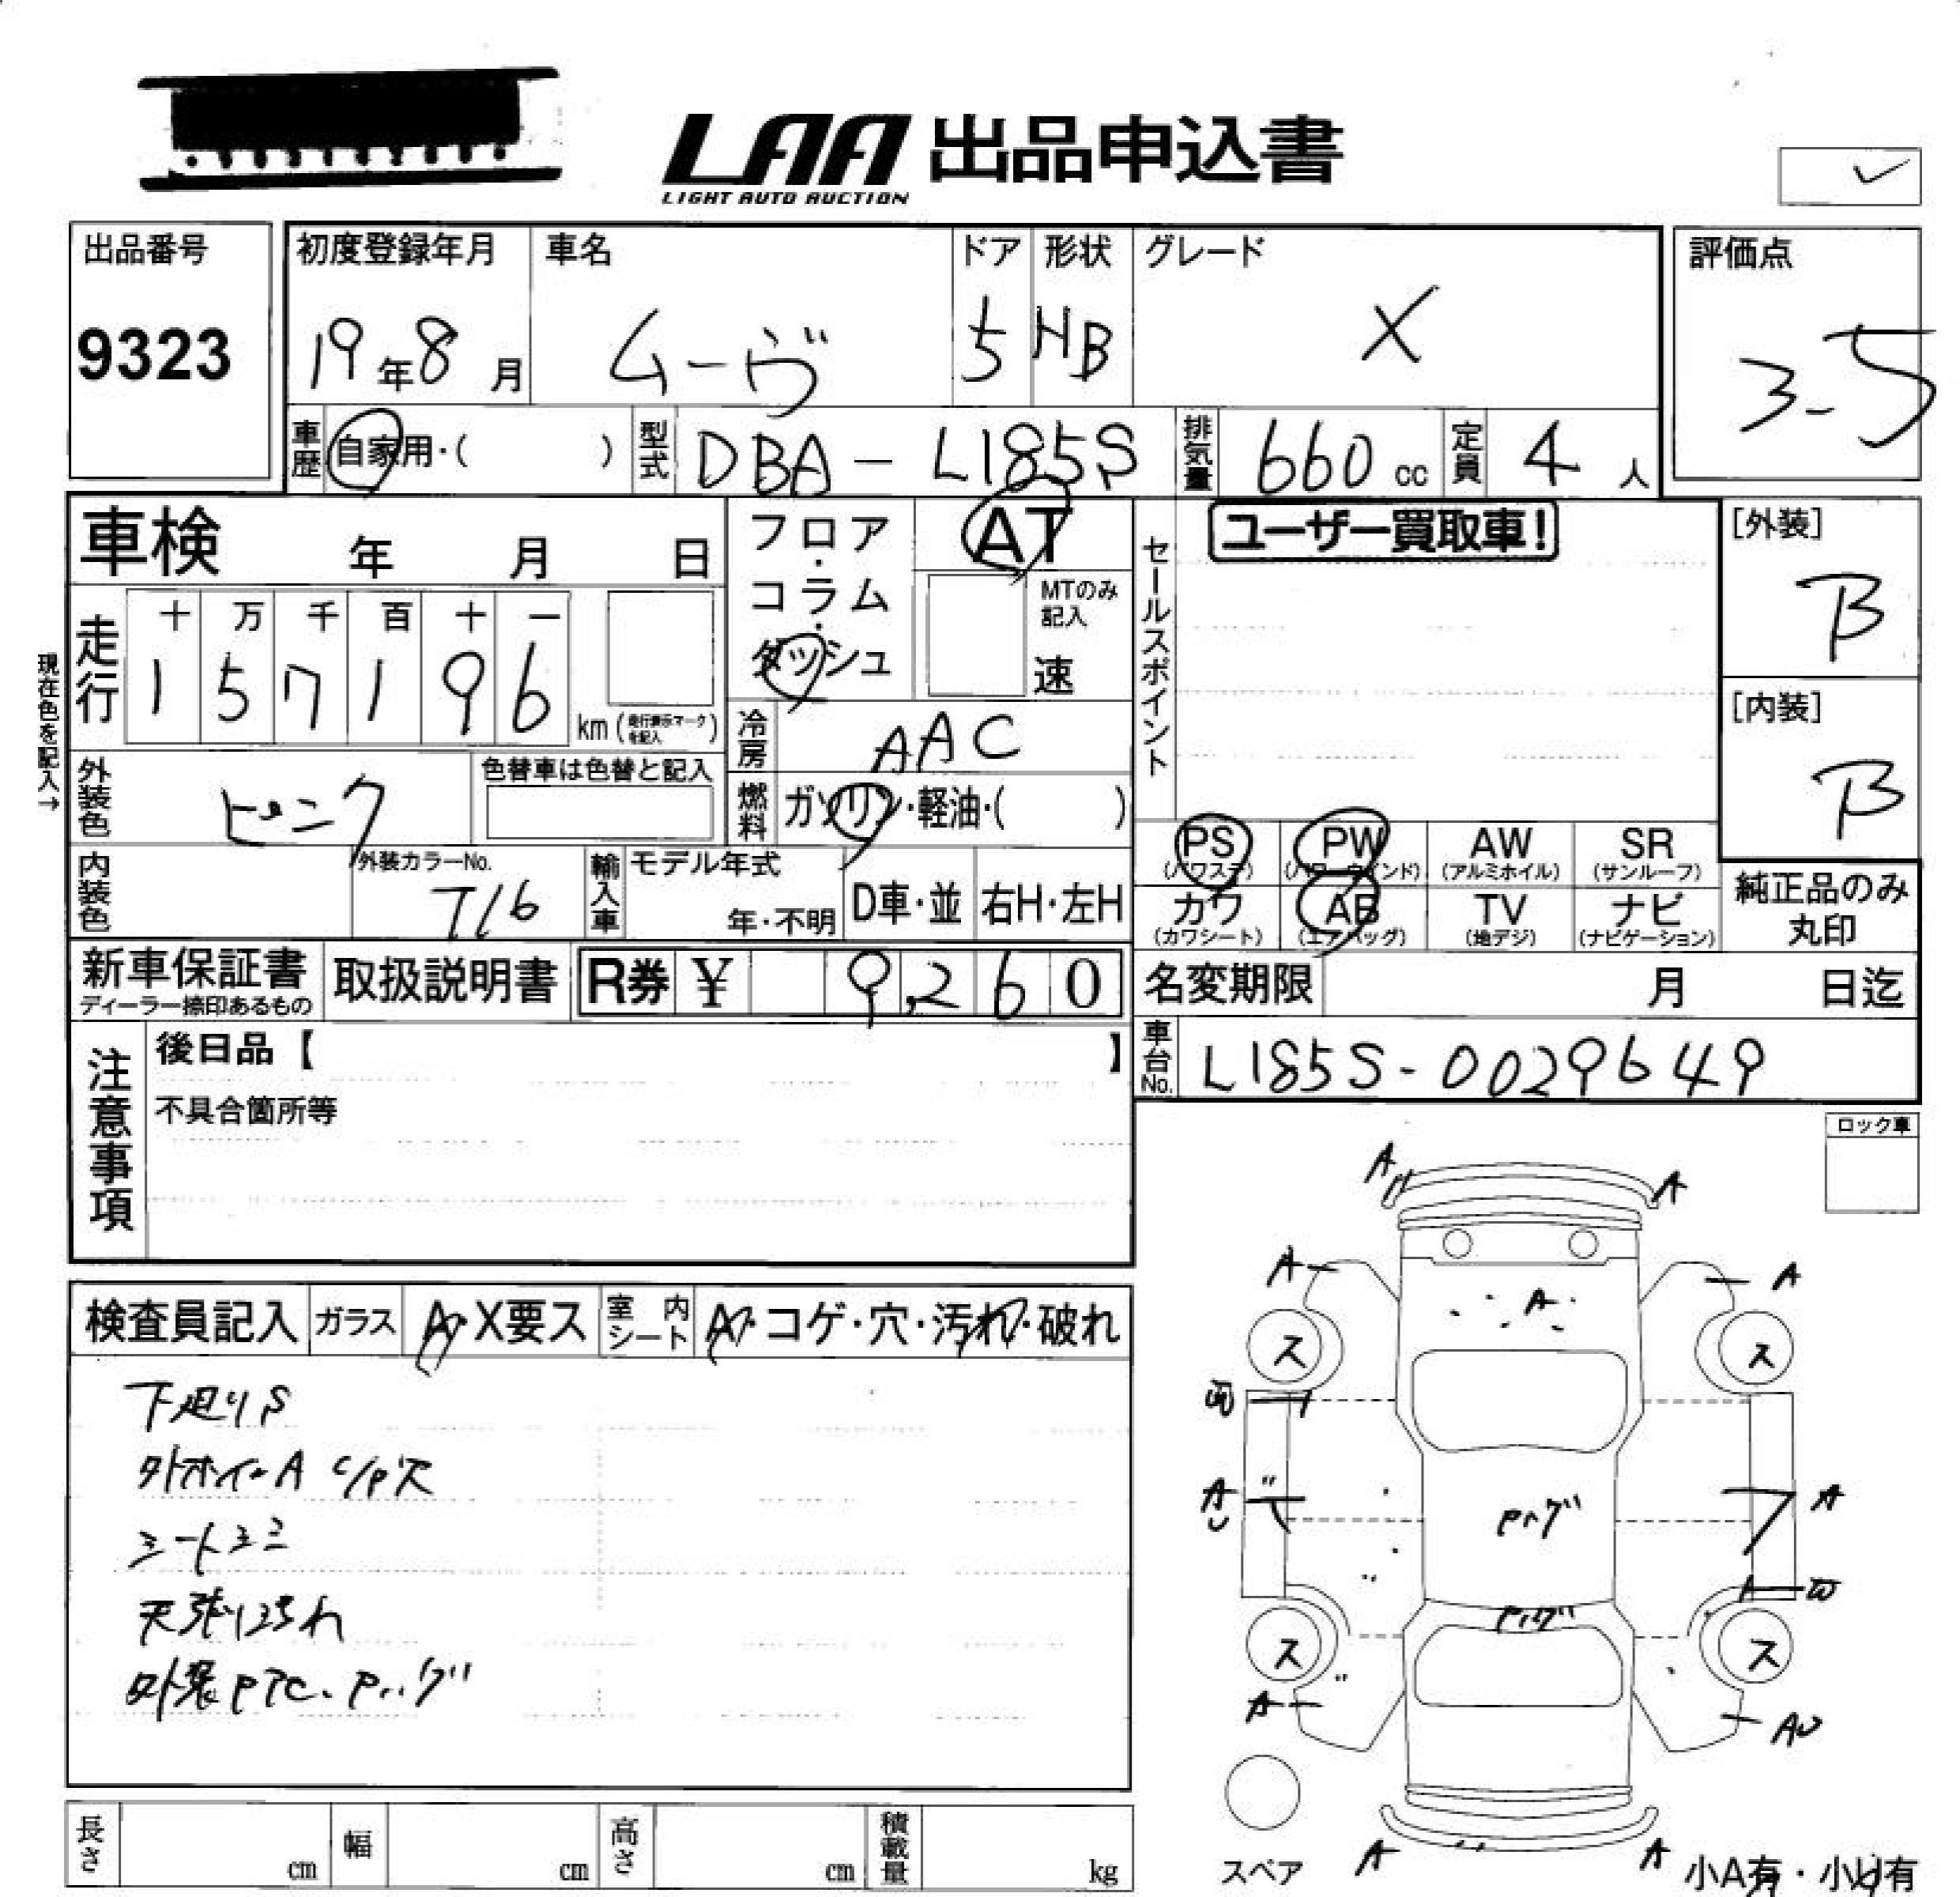 LAA 出品申込書
LIGHT AUTO AUCTION
出品番号
9323
初度登録年月
19年8月
車名
ムーヴ
ドア
5
形状
HB
グレード
X
評価点
3.5
車歴
自家用・( )
型式
DBA-L185S
排気量
660 cc
定員
4人
車検 年 月 日
フロア・コラム・ダッシュ
AT
MTのみ記入
速
セールスポイント
ユーザー買取車!
[外装]
B
[内装]
B
現在色を記入→
走行
十 万 千 百 十 一
1 5 7 1 9 6
km (走行表示マークを記入)
冷房
AAC
外装色
ピンク
色替車は色替と記入
燃料
ガソリン・軽油・( )
内装色
外装カラーNo.
T16
輸入車
モデル年式
年・不明
D車・並
右H・左H
PS
(パワステ)
PW
(パワーウインド)
AW
(アルミホイル)
SR
(サンルーフ)
カワ
(カワシート)
AB
(エアバッグ)
TV
(地デジ)
ナビ
(ナビゲーション)
純正品のみ
丸印
新車保証書
ディーラー捺印あるもの
取扱説明書
R券 ¥ 9,260
名変期限 月 日迄
車台No.
L185S-0029649
注意事項
後日品【 】
不具合箇所等
ロック車
検査員記入
ガラス
A・X要ス
室内シート
A・コゲ・穴・汚れ・破れ
下廻りS
シートシミ
天張り汚れ
A
A
A
A
A
ス
ス
A
ス
ス
A
A
A
スペア
小A有・小U有
長さ cm
幅 cm
高さ cm
積載量 kg